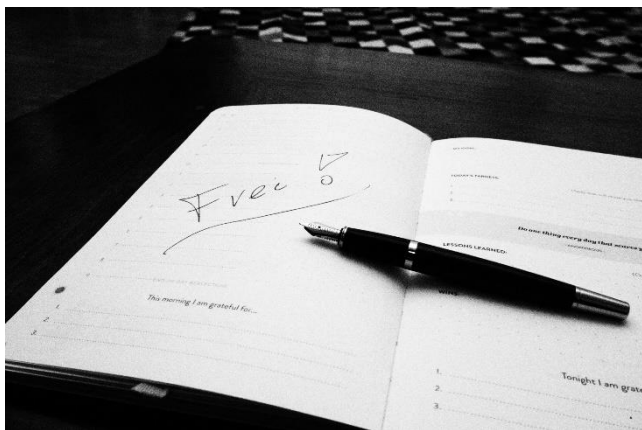 Frei!
This morning I am grateful for...
1.
2.
3.
TODAY'S TARGETS:
Do one thing every day that scares
LESSONS LEARNED:
WINS:
Tonight I am grate
1.
2.
3.